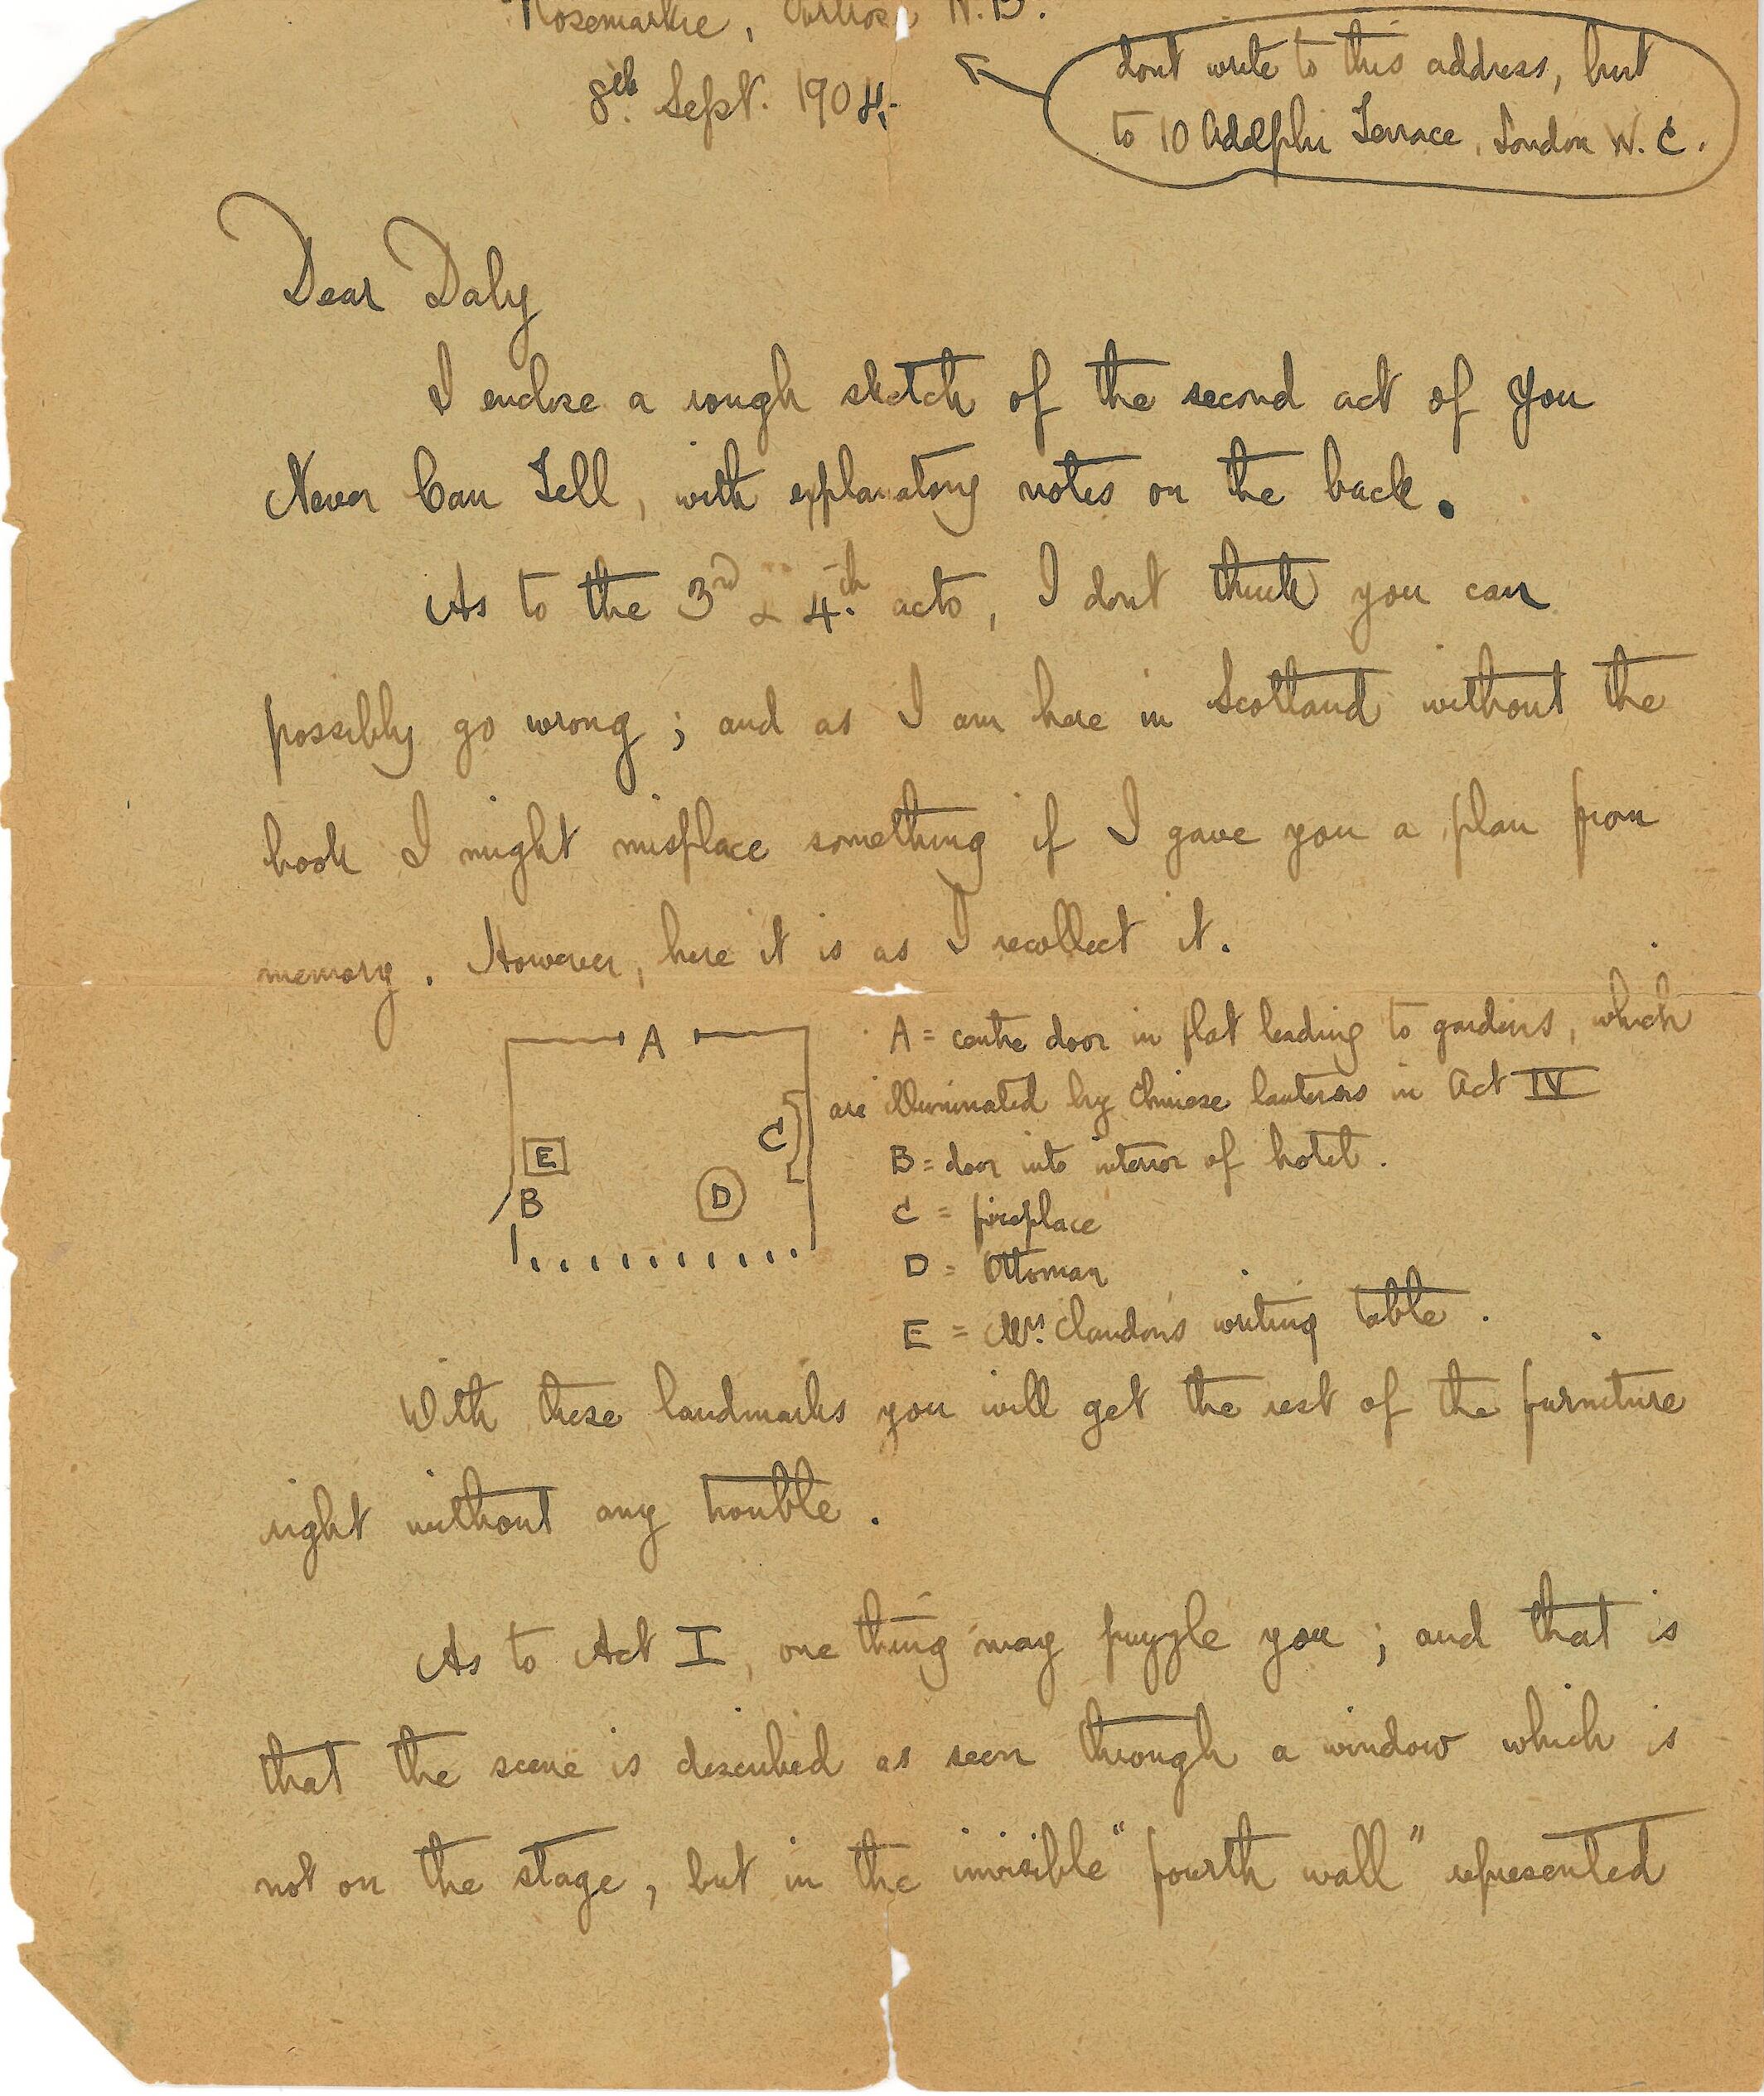 Rosemarkie, Fortrose N.B.
8th Sept. 1904.
dont write to this address, but
to 10 Adelphi Terrace, London W.C.
Dear Daly
I enclose a rough sketch of the second act of You
Never Can Tell, with explanatory notes on the back.
As to the 3rd & 4th acts, I dont think you can
possibly go wrong; and as I am here in Scotland without the
book I might misplace something if I gave you a plan from
memory. However, here it is as I recollect it.
A
C
E
B
D
A = centre door in flat leading to gardens, which
are illuminated by Chinese lanterns in Act IV
B = door into interior of hotel.
C = fireplace
D = Ottoman
E = Mrs. Clandons writing table.
With these landmarks you will get the rest of the furniture
right without any trouble.
As to Act I, one thing may puzzle you; and that is
that the scene is described as seen through a window which is
not on the stage, but in the invisible "fourth wall" represented